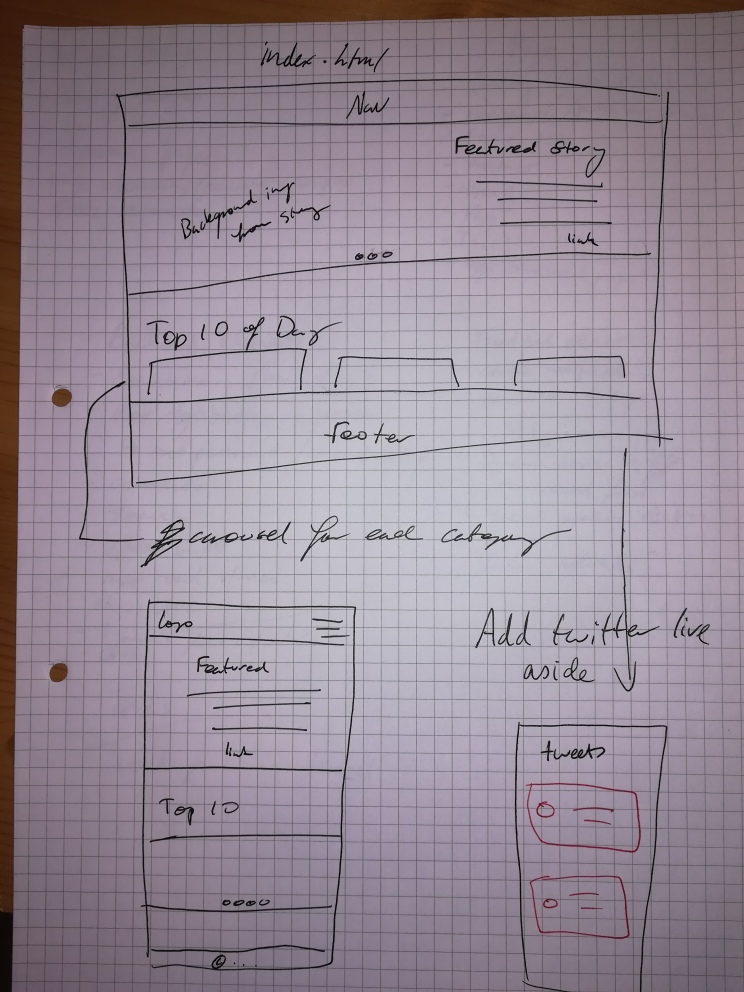 index.html
Nav
Featured Story
Background img
from story
link
Top 10 of Day
Footer
carousel for each category
Logo
Featured
link
Top 10
© ...
Add twitter live
aside
tweets